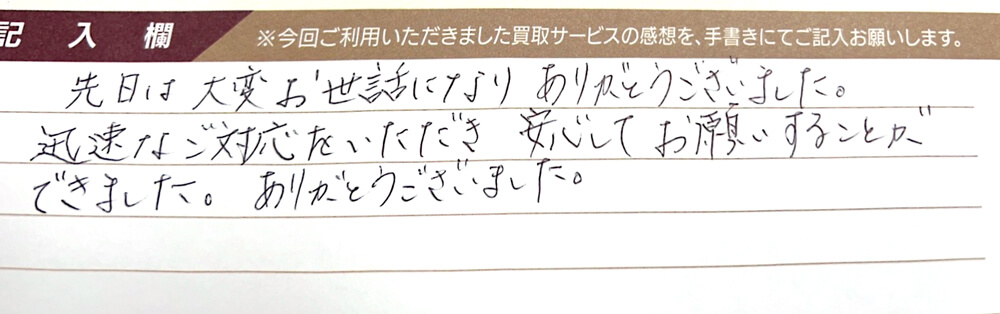 記入欄 ※今回ご利用いただきました買取サービスの感想を、手書きにてご記入お願いします。
先日は大変お世話になり ありがとうございました。
迅速なご対応をいただき 安心してお願いすることが
できました。 ありがとうございました。